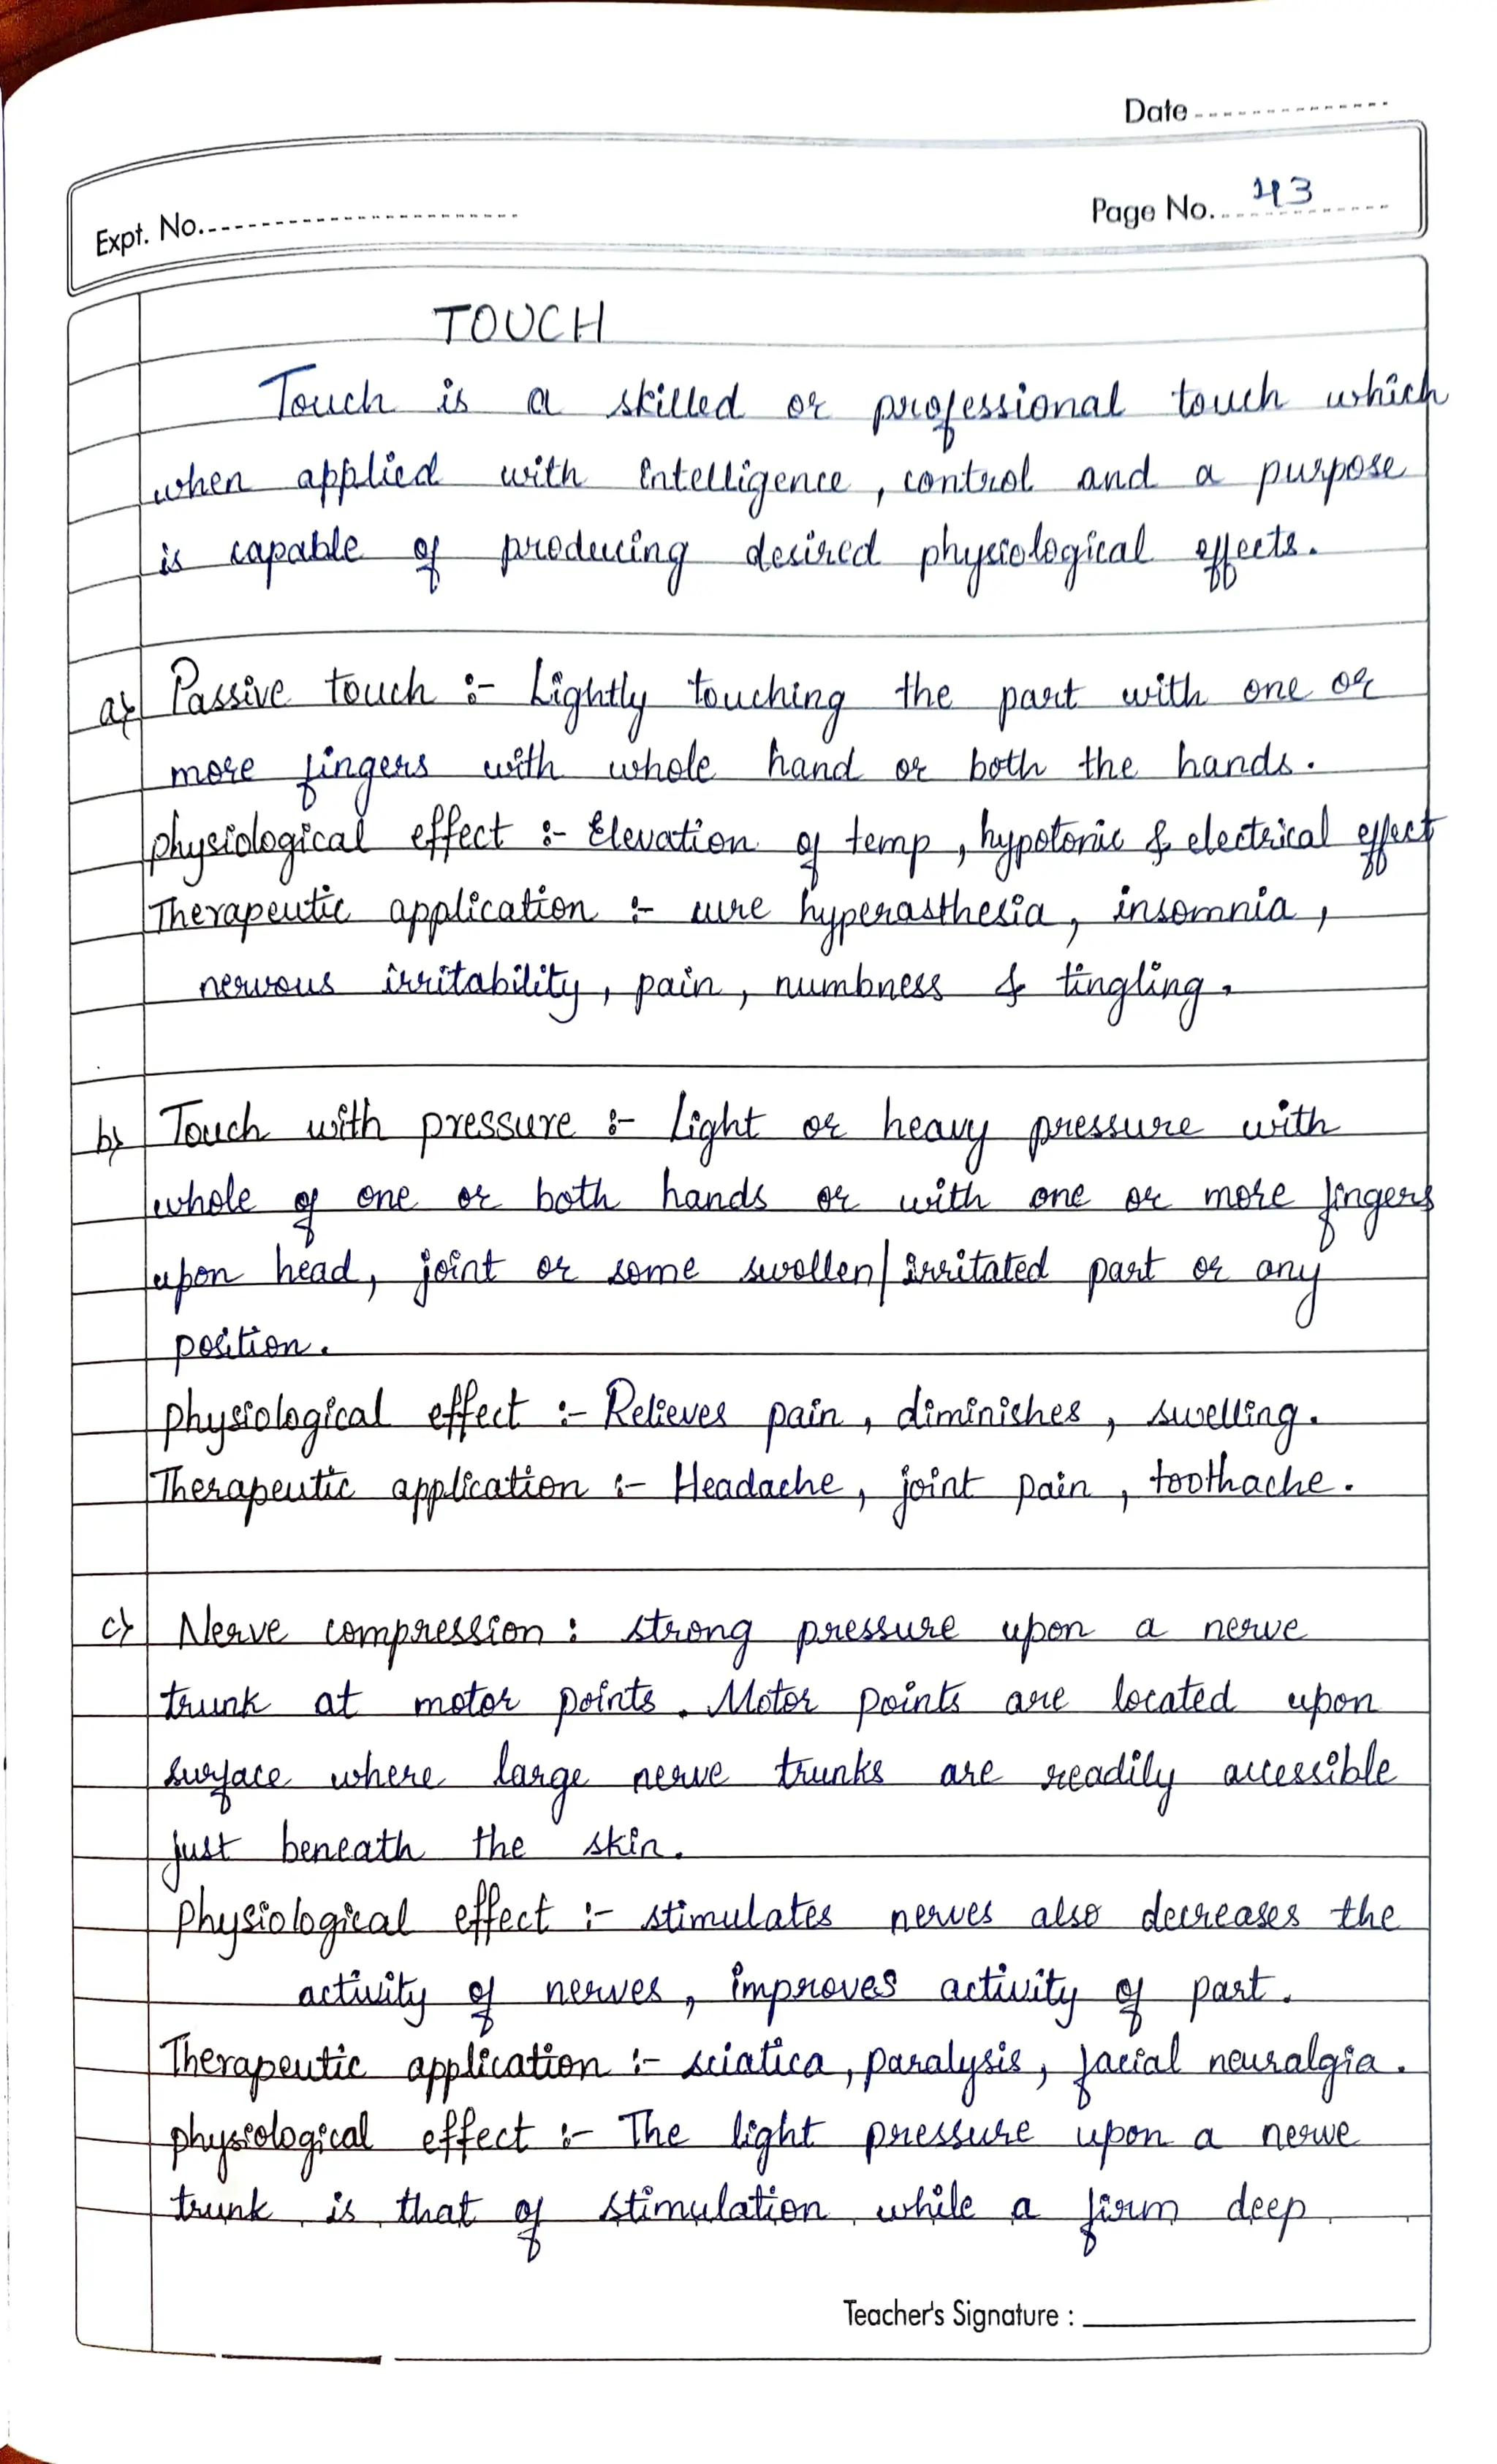 Date
Expt. No.
Page No. 43
TOUCH
Touch is a skilled or professional touch which
when applied with intelligence, control and a purpose
is capable of producing desired physiological effects.
a) Passive touch :- Lightly touching the part with one or
more fingers with whole hand or both the hands.
physiological effect :- Elevation of temp, hypotonic & electrical effect
Therapeutic application :- cure hyperasthesia, insomnia,
nervous irritability, pain, numbness & tingling.
b) Touch with pressure :- Light or heavy pressure with
whole of one or both hands or with one or more fingers
upon head, joint or some swollen/irritated part or any
position.
physiological effect :- Relieves pain, diminishes, swelling.
Therapeutic application :- Headache, joint pain, toothache.
c) Nerve compression : strong pressure upon a nerve
trunk at motor points. Motor points are located upon
surface where large nerve trunks are readily accessible
just beneath the skin.
physiological effect :- stimulates nerves also decreases the
activity of nerves, improves activity of part.
Therapeutic application :- sciatica, paralysis, facial neuralgia.
physiological effect :- The light pressure upon a nerve
trunk is that of stimulation while a firm deep
Teacher's Signature :